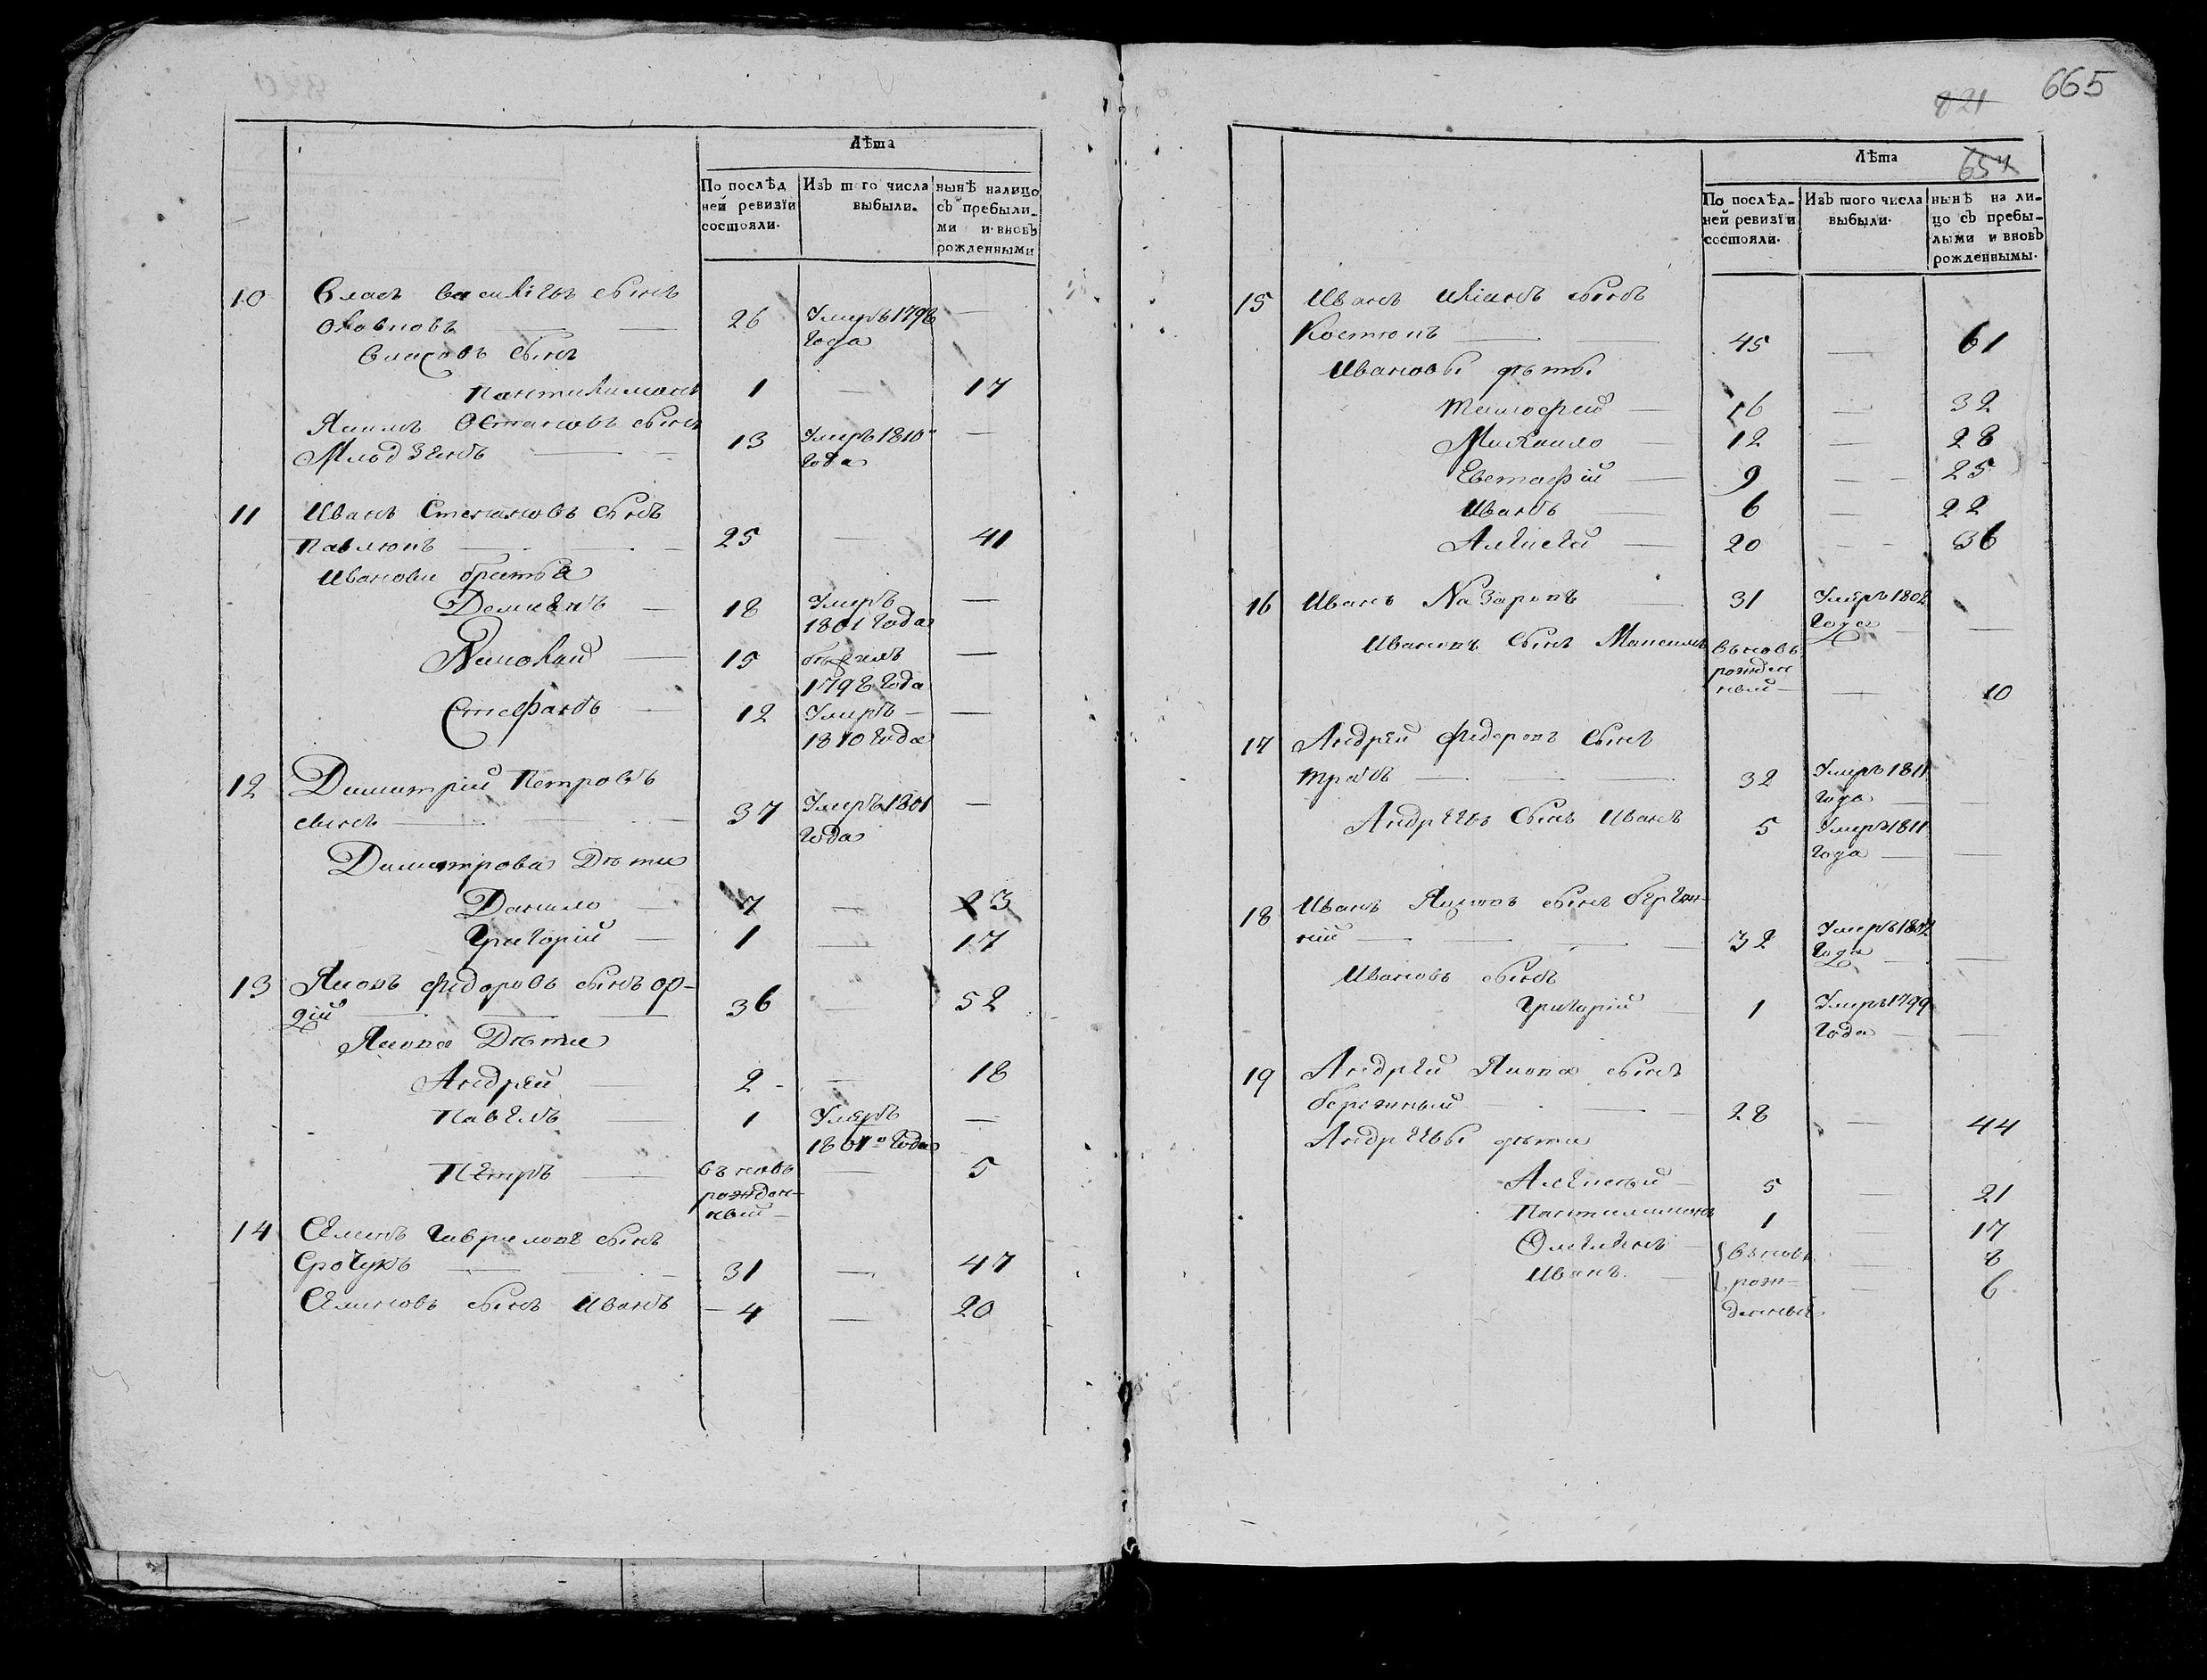 Лѣта
По послѣд Изъ того числа нынѣ налицо
ней ревизїи выбыли. съ прибыли-
состояли. ми и вновь
рожденными
10 Власъ Василіевъ сынъ
26 Умеръ 1798 —
года
Власовъ сынъ
Пантилимонъ 1 — 17
Якимъ сынъ
13 Умеръ 1810 —
года
11 Иванъ Степановъ сынъ
Павлюкъ — 25 — 41
Ивановы братья
Демиянъ — 18 Умеръ —
1801 года
Николай — 15 —
1798 года
Стефанъ — 12 Умеръ —
1810 года
12 Димитрій Петровъ
сынъ — 37 Умеръ 1801 —
года
Димитрова Дѣти
Данило — 7 — 23
Григорій — 1 — 17
13 Яковъ Федоровъ сынъ
36 — 52
Якова Дѣти
Андрей — 2 — 18
Павелъ — 1 Умеръ —
1801го года
Петръ — въновь — 5
рожден-
ный —
14 Семенъ Гавриловъ сынъ
31 — 47
Семеновъ сынъ Иванъ — 4 — 20
821 665
Лѣта 657
По послѣд- Изъ того числа нынѣ на ли-
ней ревизїи выбыли. цо съ прибы-
состояли. лыми и вновь
рожденными.
15 Иванъ сынъ
Костюкъ — 45 — 61
Ивановы дѣти
Тимофей — 16 — 32
Михайло — 12 — 28
Евстафій — 9 — 25
Иванъ — 6 — 22
Алексѣй — 20 — 36
16 Иванъ Назаровъ — 31 Умеръ 1802
года — —
Ивановъ сынъ Максимъ въновь
рожден
ный — — 10
17 Андрей Федоровъ сынъ
32 Умеръ 1811
года — —
Андрѣевъ сынъ Иванъ 5 Умеръ 1811
года — —
18 Иванъ Яковъ сынъ Береж-
ній — 32 Умеръ
года — —
Ивановъ сынъ
Григорій — 1 Умеръ 1799
года — —
19 Андрей Якова сынъ
Бережный — 28 — 44
Андрѣевы дѣти
Алексѣй — 5 — 21
Пантилимонъ 1 — 17
въновь — 8
Иванъ — рож- — 6
денный